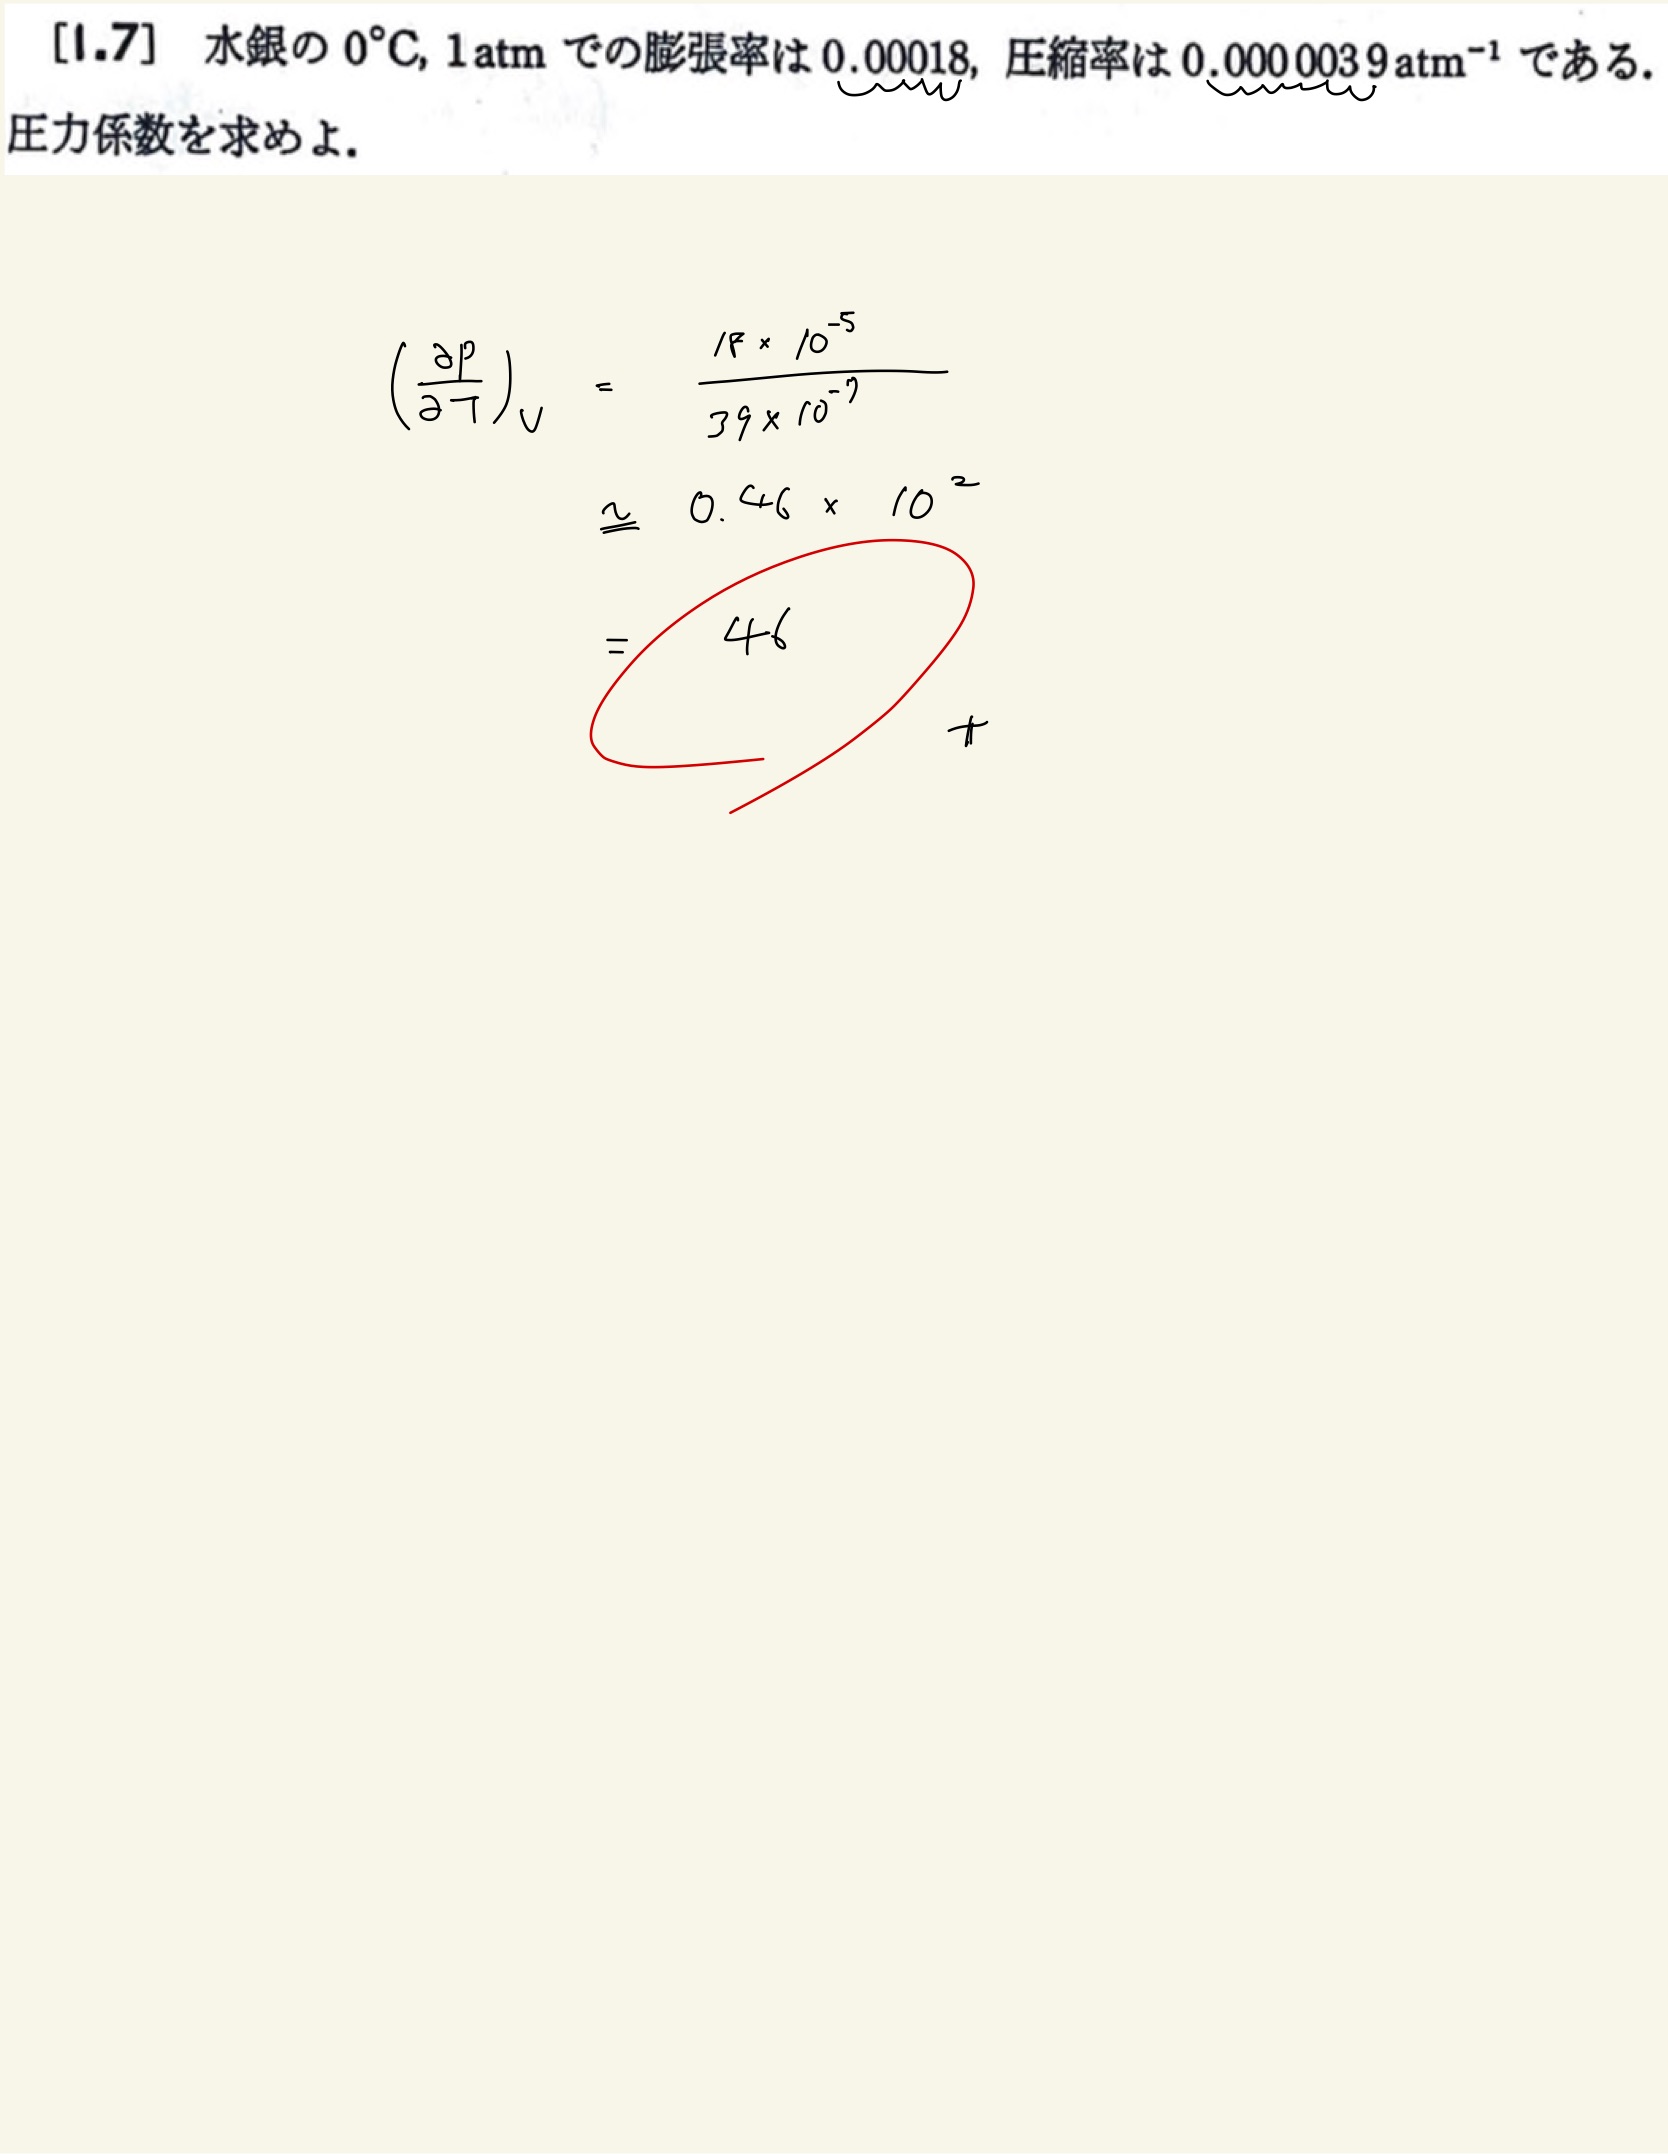 [1.7] 水銀の 0°C, 1 atm での膨張率は 0.00018, 圧縮率は 0.0000039 atm⁻¹ である.
圧力係数を求めよ.
(∂p/∂T)_V = 18 × 10⁻⁵ / 39 × 10⁻⁷
≃ 0.46 × 10²
= 46